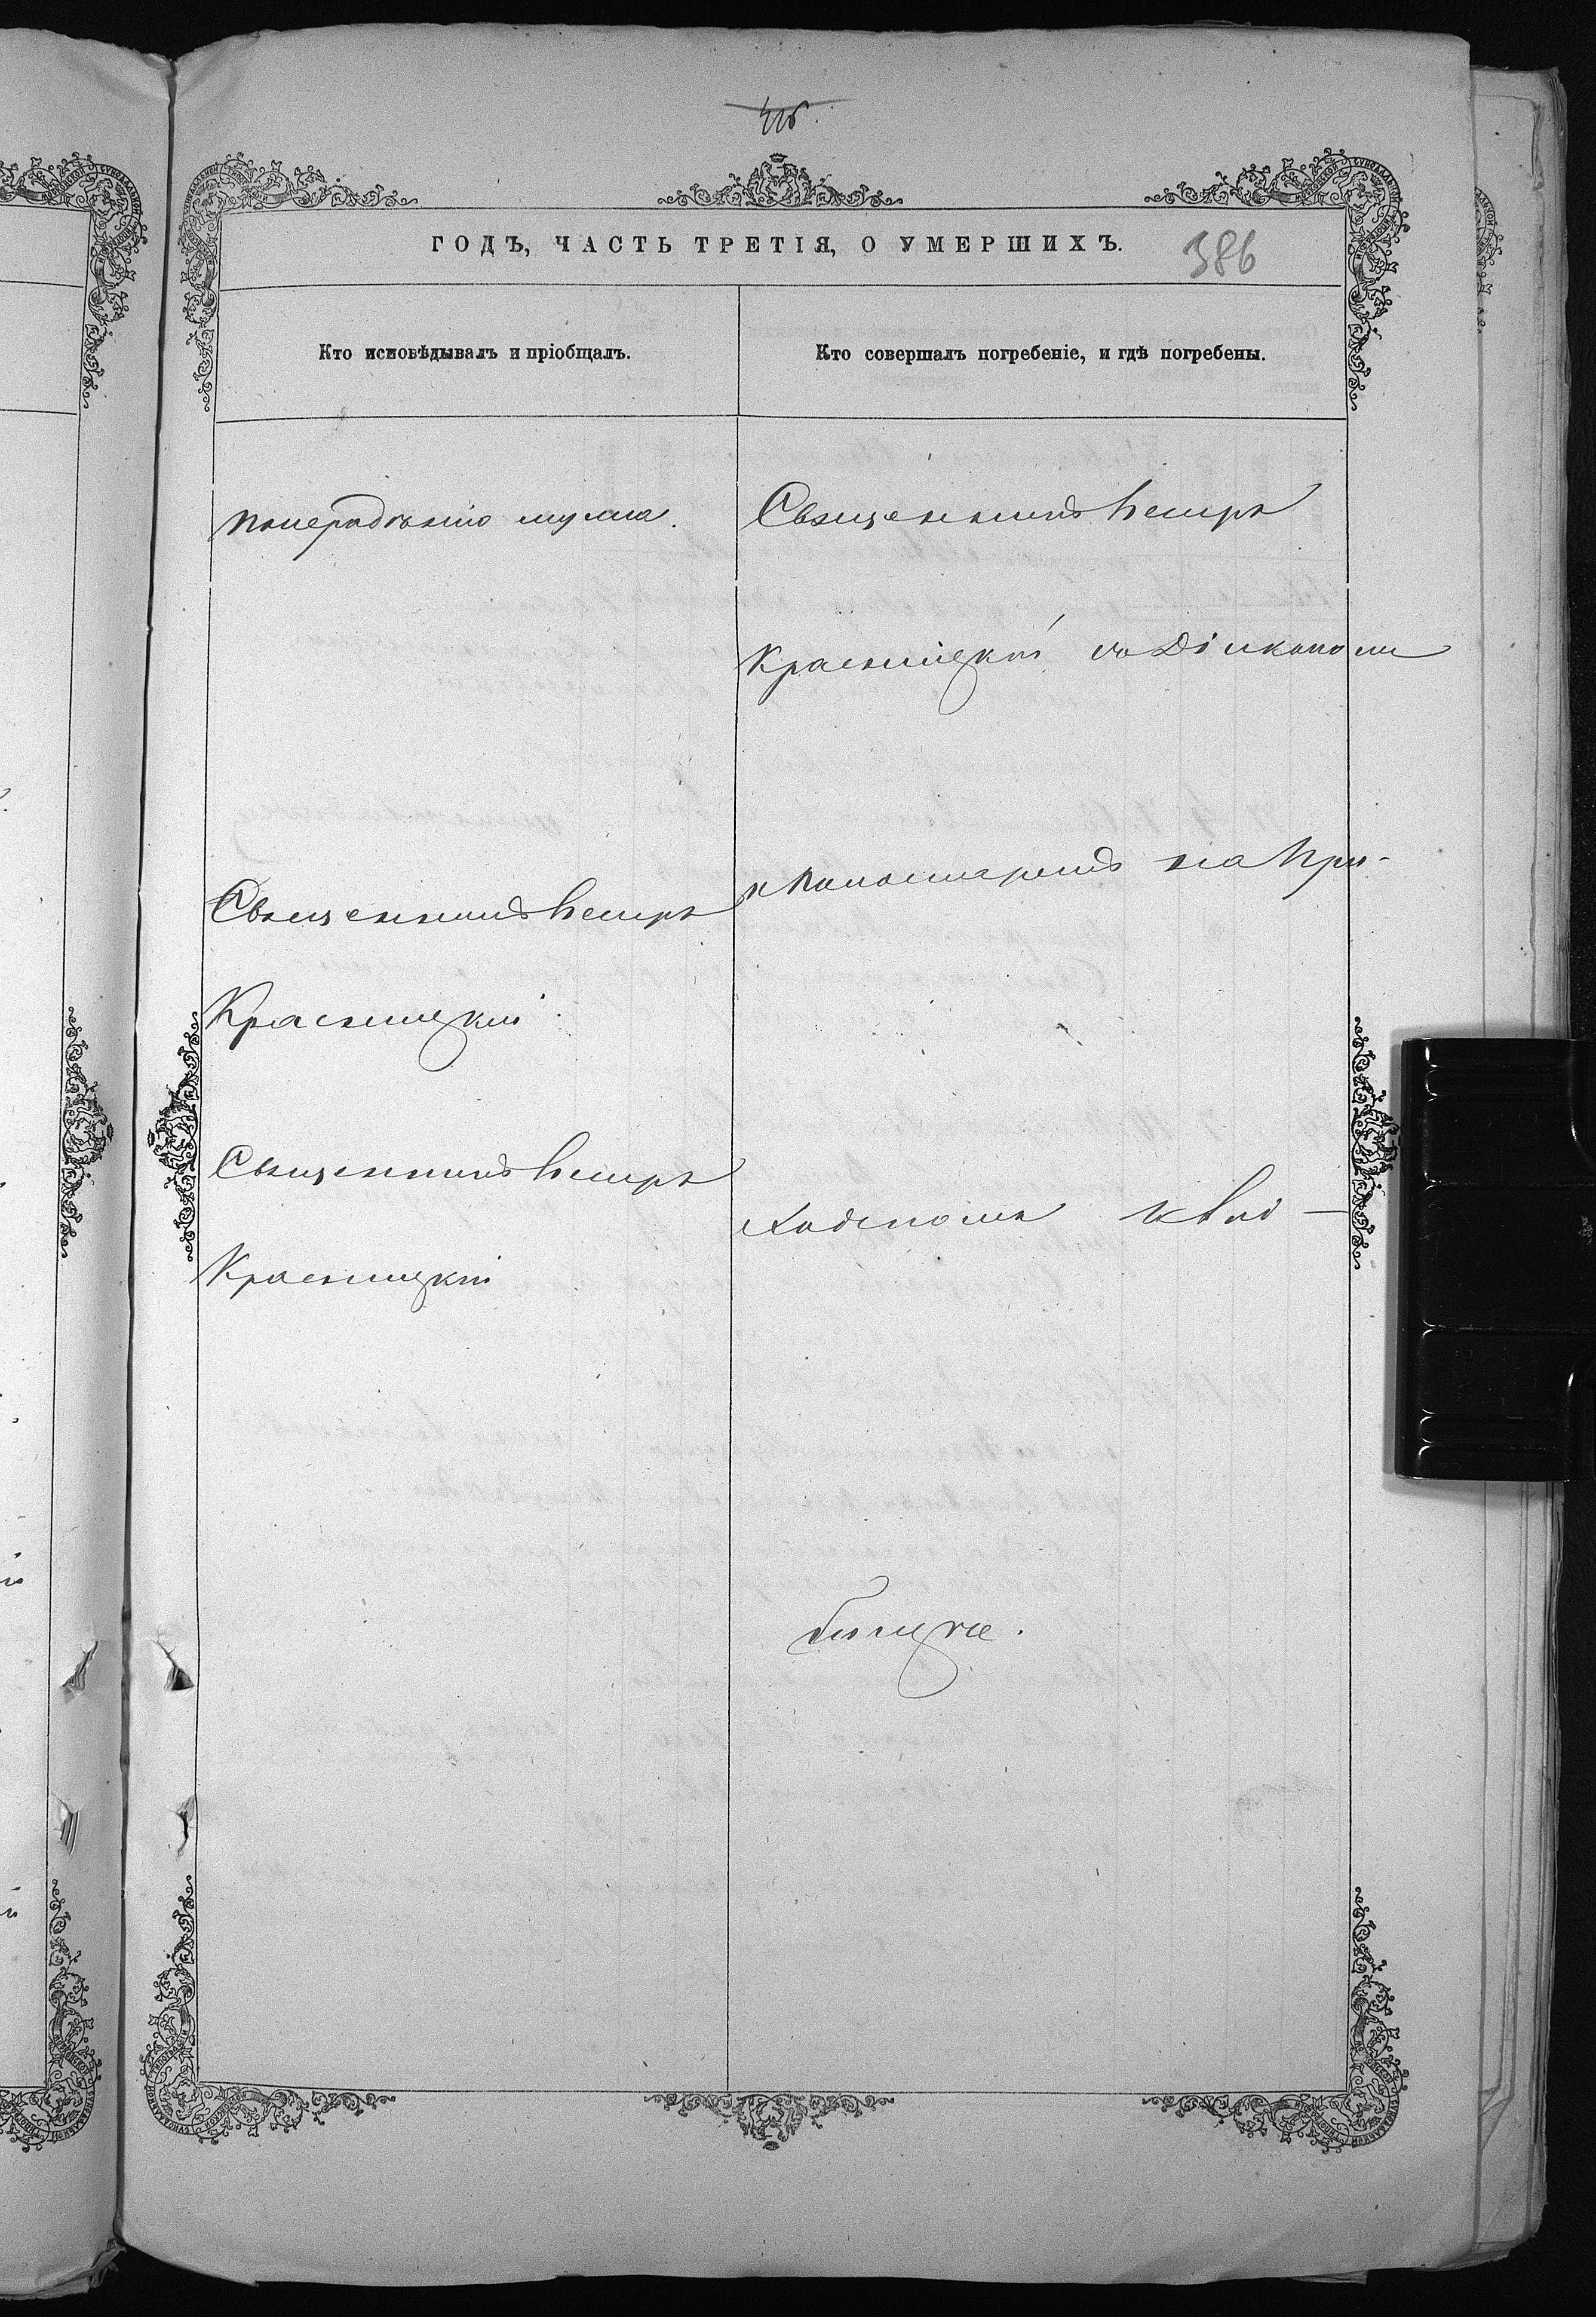 386
ГОДЪ, ЧАСТЬ ТРЕТІЯ, О УМЕРШИХЪ.
Кто исповѣдывалъ и пріобщалъ.
Кто совершалъ погребеніе, и гдѣ погребены.
понерадѣнію мужа.
Священникъ Петръ
Красницкій
Священникъ Петръ
Красницкій
Священникъ Петръ
Красницкій со Діакономъ
и Пономаремъ на При-
ходскомъ Клад-
бищѣ.